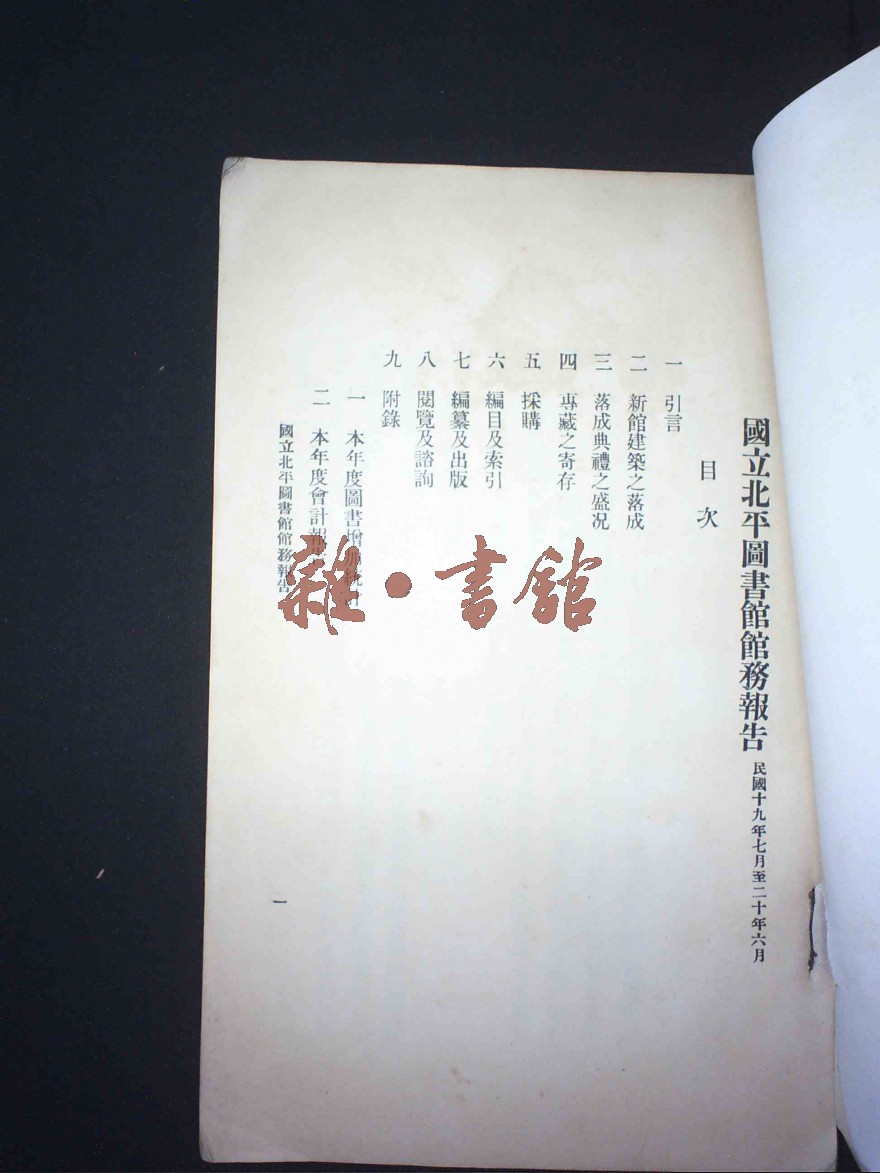 國立北平圖書館館務報告 民國十九年七月至二十年六月
目次
一 引言
二 新館建築之落成
三 落成典禮之盛况
四 專藏之寄存
五 採購
六 編目及索引
七 編纂及出版
八 閱覽及諮詢
九 附錄
一 本年度圖書增加統計
二 本年度會計報告
國立北平圖書館館務報告
一
雜·書館